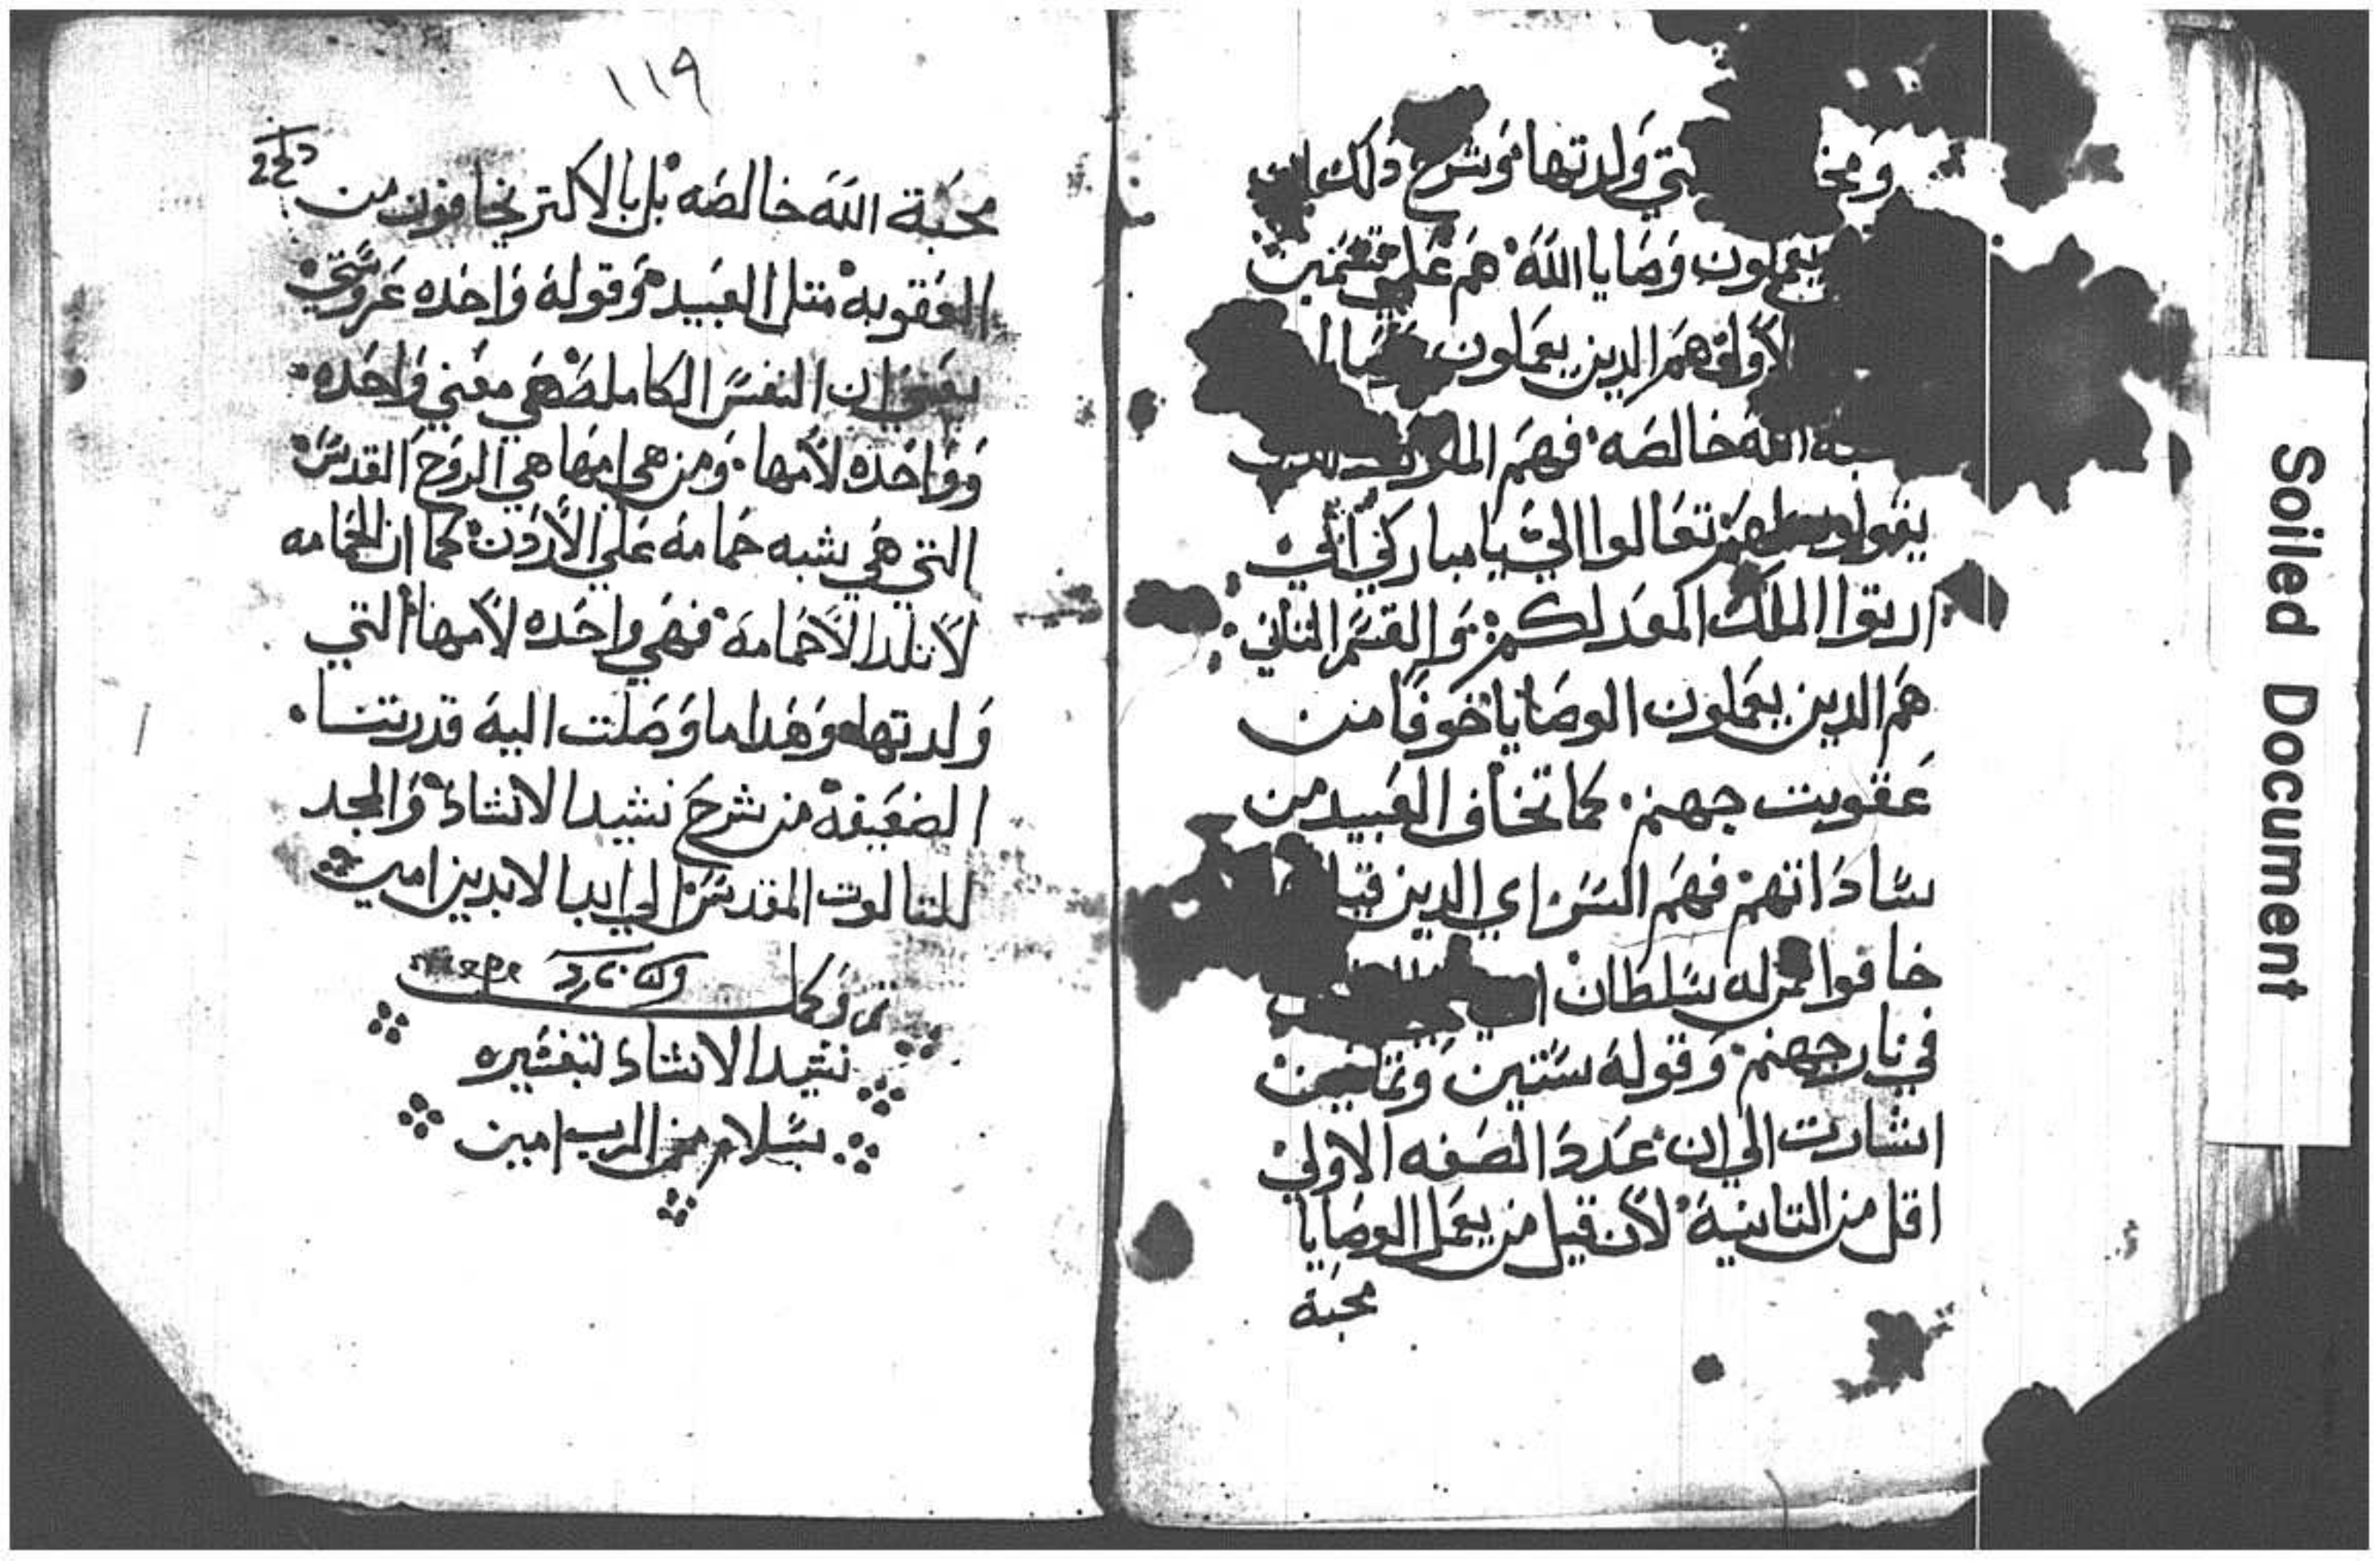 التي ولدتها وشرح دلك ان
يعملون وصايا الله هم علي قسمين
الاولي هم الدين يعملون وصايا
الله خالصه فهم الملوك
يقول لهم تعالوا اليّ يا مباركي ابي
ارتوا الملك المعد لكم والقسم التاني
هم الدين يعملون الوصايا خوفا من
عقوبت جهنم كما تخاف العبيد من
ساداتهم فهم السراي الدين
خافوا سلطان
في نار جهنم وقوله ستين وتمانين
اشارت الي ان عدد الصفه الاولي
اقل من التانية لان قيل من يعمل الوصايا
محبة
١١٩
محبة الله خالصه بل بالاكتر يخافون من
العقوبه متل العبيد وقوله واحده عروستي
يعني ان النفس الكامله هي معني واحده
وواحده لامها ومن هي امها هي الروح القدس
التي هي بشبه حمامه علي الاردن كما ان الحمامه
لا تلد الا حمامه فهي واحده لامها التي
ولدتها وهدا ما وصلت اليه قدرتنا
الضعيفه من شرح نشيد الانشاد والمجد
للتالوت المقدس الي ابد الابدين امين
تم وكمل
نشيد الانشاد بتفسيره
بسلام من الرب امين
Soiled Document